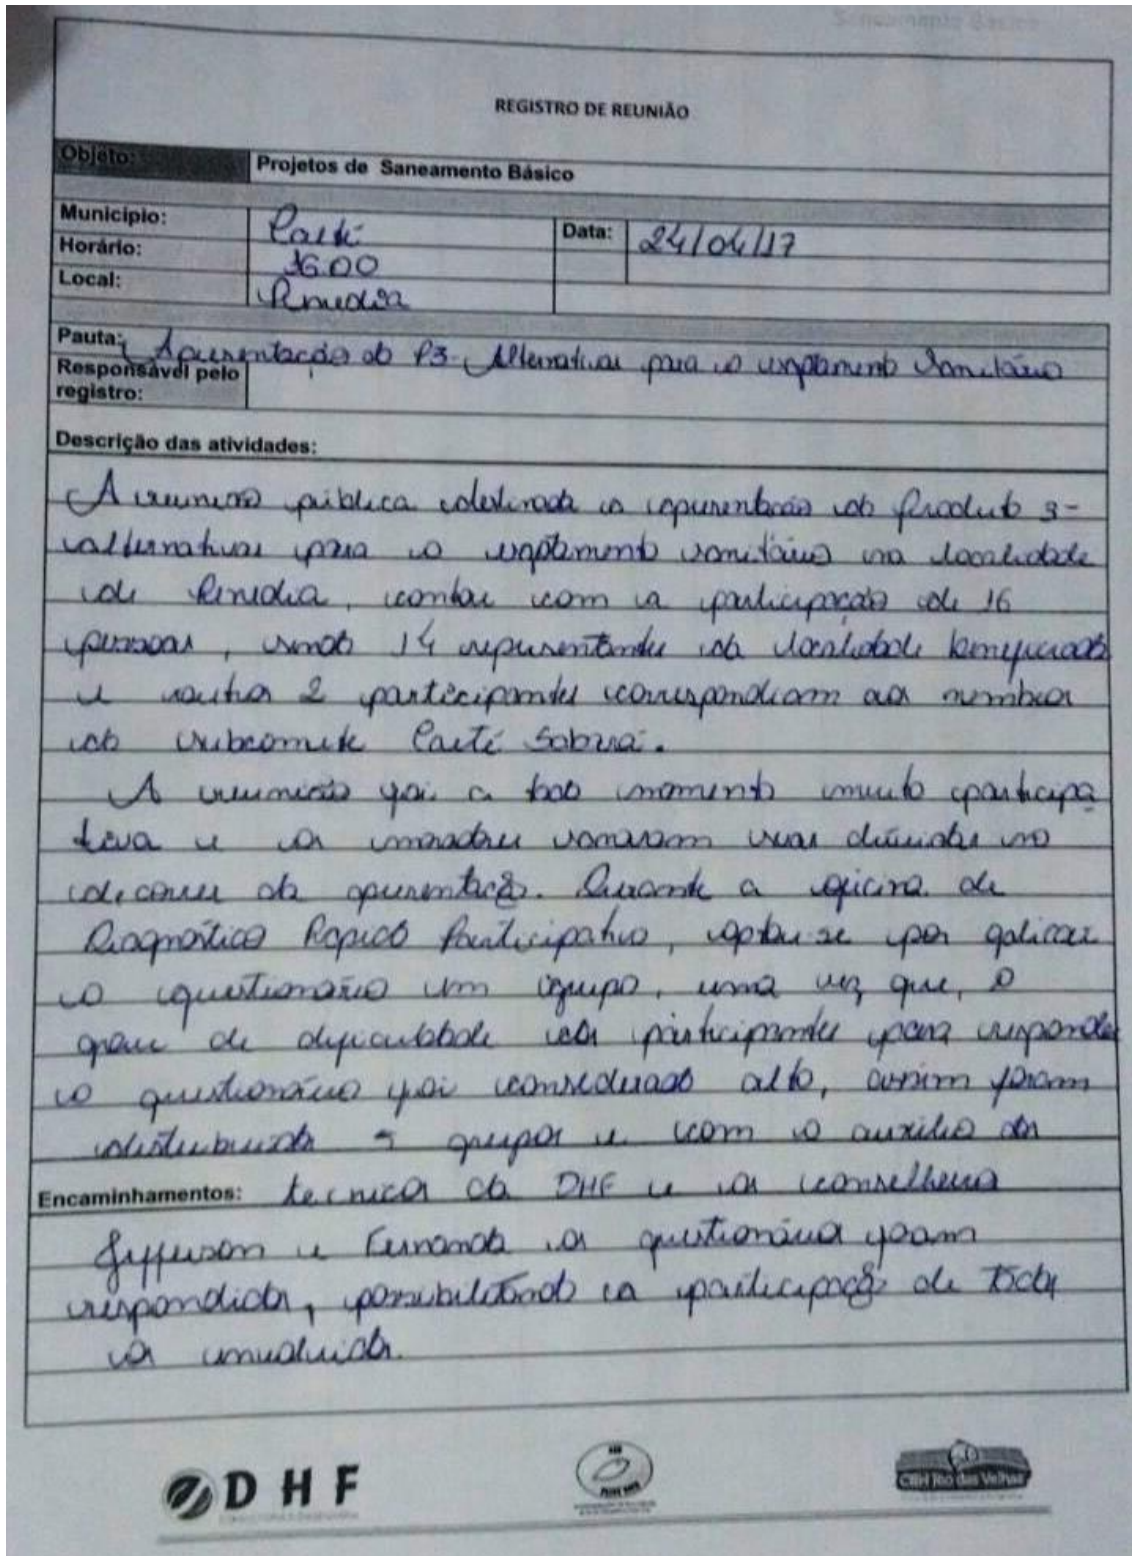 Saneamento Básico
REGISTRO DE REUNIÃO
Objeto: Projetos de Saneamento Básico
Município: Caeté Data: 24/04/17
Horário: 16:00
Local:
Pauta: Apresentação do P3 - Alternativas para o esgotamento sanitário
Responsável pelo
registro:
Descrição das atividades:
A reunião pública destinada a apresentação do Produto 3 -
alternativas para o esgotamento sanitário na localidade
de, contou com a participação de 16
pessoas, sendo 14 representantes da localidade beneficiada
e outros 2 participantes correspondiam aos membros
do subcomitê Caeté Sabará.
A reunião foi a todo momento muito participa
tiva e os moradores sanaram suas dúvidas no
decorrer da apresentação. Durante a oficina de
Diagnóstico Rápido Participativo, optou-se por aplicar
o questionário em grupo, uma vez que, o
grau de dificuldade dos participantes para responder
o questionário foi considerado alto, assim foram
distribuidos grupos e com o auxílio dos
Encaminhamentos: técnicos da DHF e os conselheiros
Jefferson e Fernanda os questionários foram
respondidos, possibilitando a participação de todos
os envolvidos.
DHF
CBH Rio das Velhas